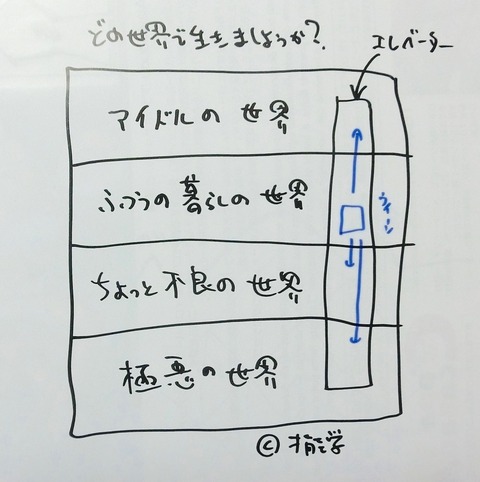 どの世界で生きましょうか?
エレベーター
アイドルの世界
ふつうの暮らしの世界
ウィーン
ちょっと不良の世界
極悪の世界